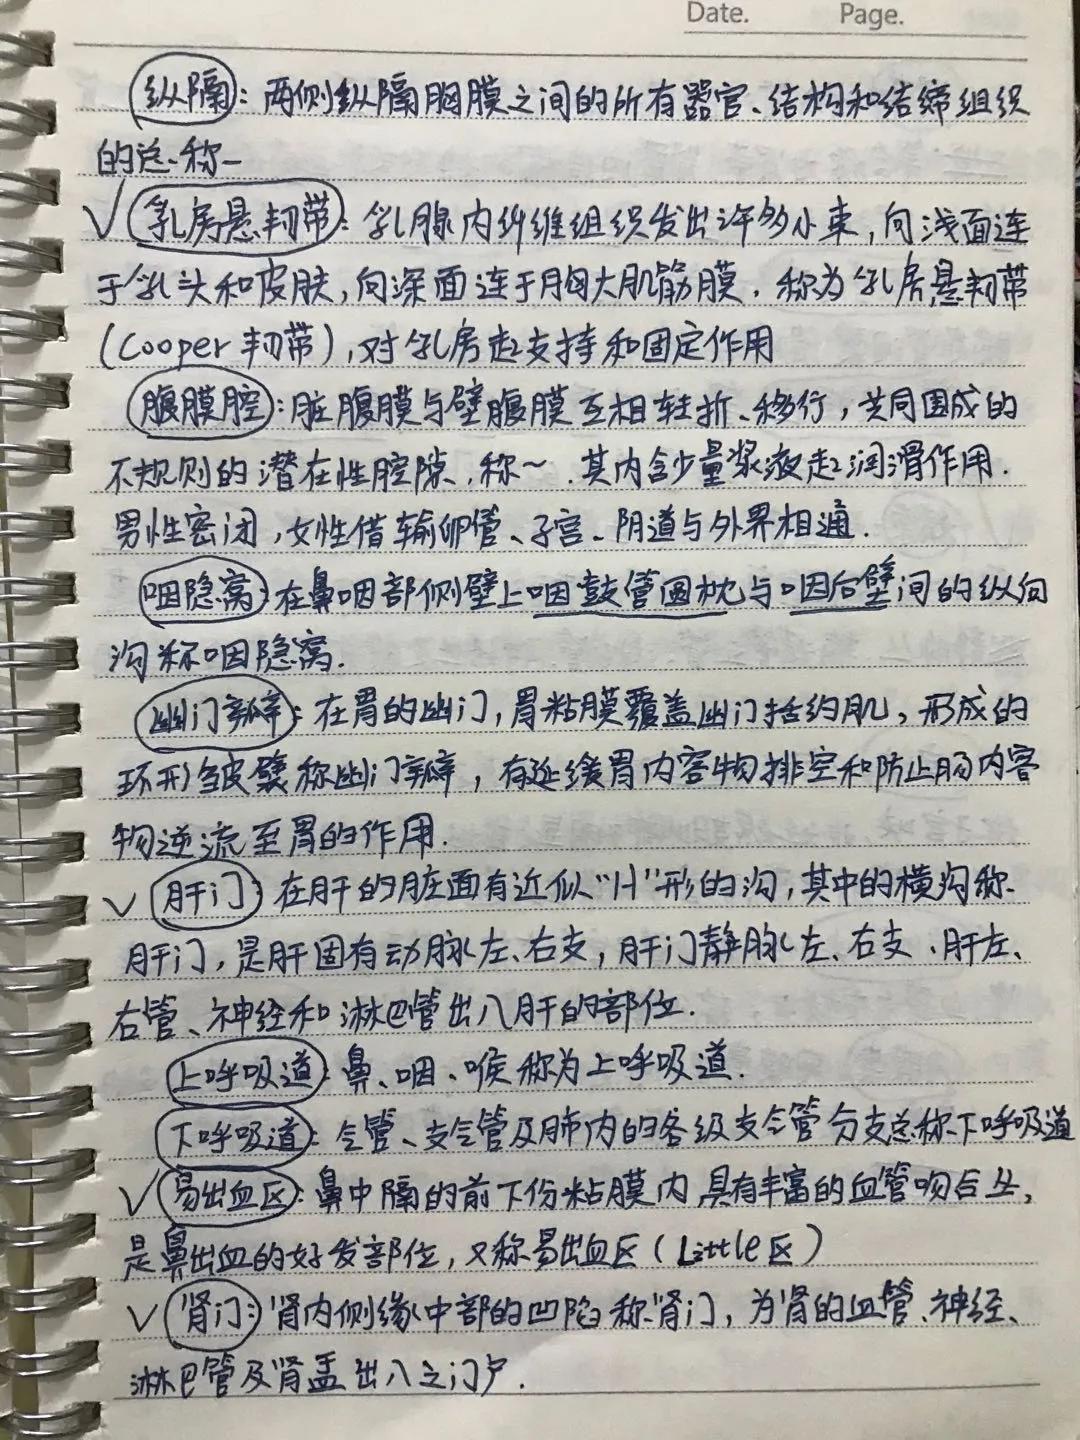 Date. Page.
纵隔: 两侧纵隔胸膜之间的所有器官、结构和结缔组织
的总称
√ 乳房悬韧带: 乳腺内纤维组织发出许多小束, 向浅面连
于乳头和皮肤, 向深面连于胸大肌筋膜. 称为乳房悬韧带
(Cooper 韧带), 对乳房起支持和固定作用
腹膜腔: 脏腹膜与壁腹膜互相转折、移行, 共同围成的
不规则的潜在性腔隙, 称~. 其内含少量浆液起润滑作用.
男性密闭, 女性借输卵管、子宫、阴道与外界相通.
咽隐窝: 在鼻咽部侧壁上咽鼓管圆枕与咽后壁间的纵向
沟称咽隐窝.
幽门瓣: 在胃的幽门, 胃粘膜覆盖幽门括约肌, 形成的
环形皱襞称幽门瓣, 有延缓胃内容物排空和防止肠内容
物逆流至胃的作用.
√ 肝门: 在肝的脏面有近似“H”形的沟, 其中的横沟称
肝门, 是肝固有动脉左、右支, 肝门静脉左、右支、肝左、
右管、神经和淋巴管出入肝的部位.
上呼吸道: 鼻、咽、喉称为上呼吸道.
下呼吸道: 气管、支气管及肺内的各级支气管分支总称下呼吸道
√ 易出血区: 鼻中隔的前下份粘膜内具有丰富的血管吻合丛,
是鼻出血的好发部位, 又称易出血区 (Little区)
√ 肾门: 肾内侧缘中部的凹陷称肾门, 为肾的血管、神经、
淋巴管及肾盂出入之门户.